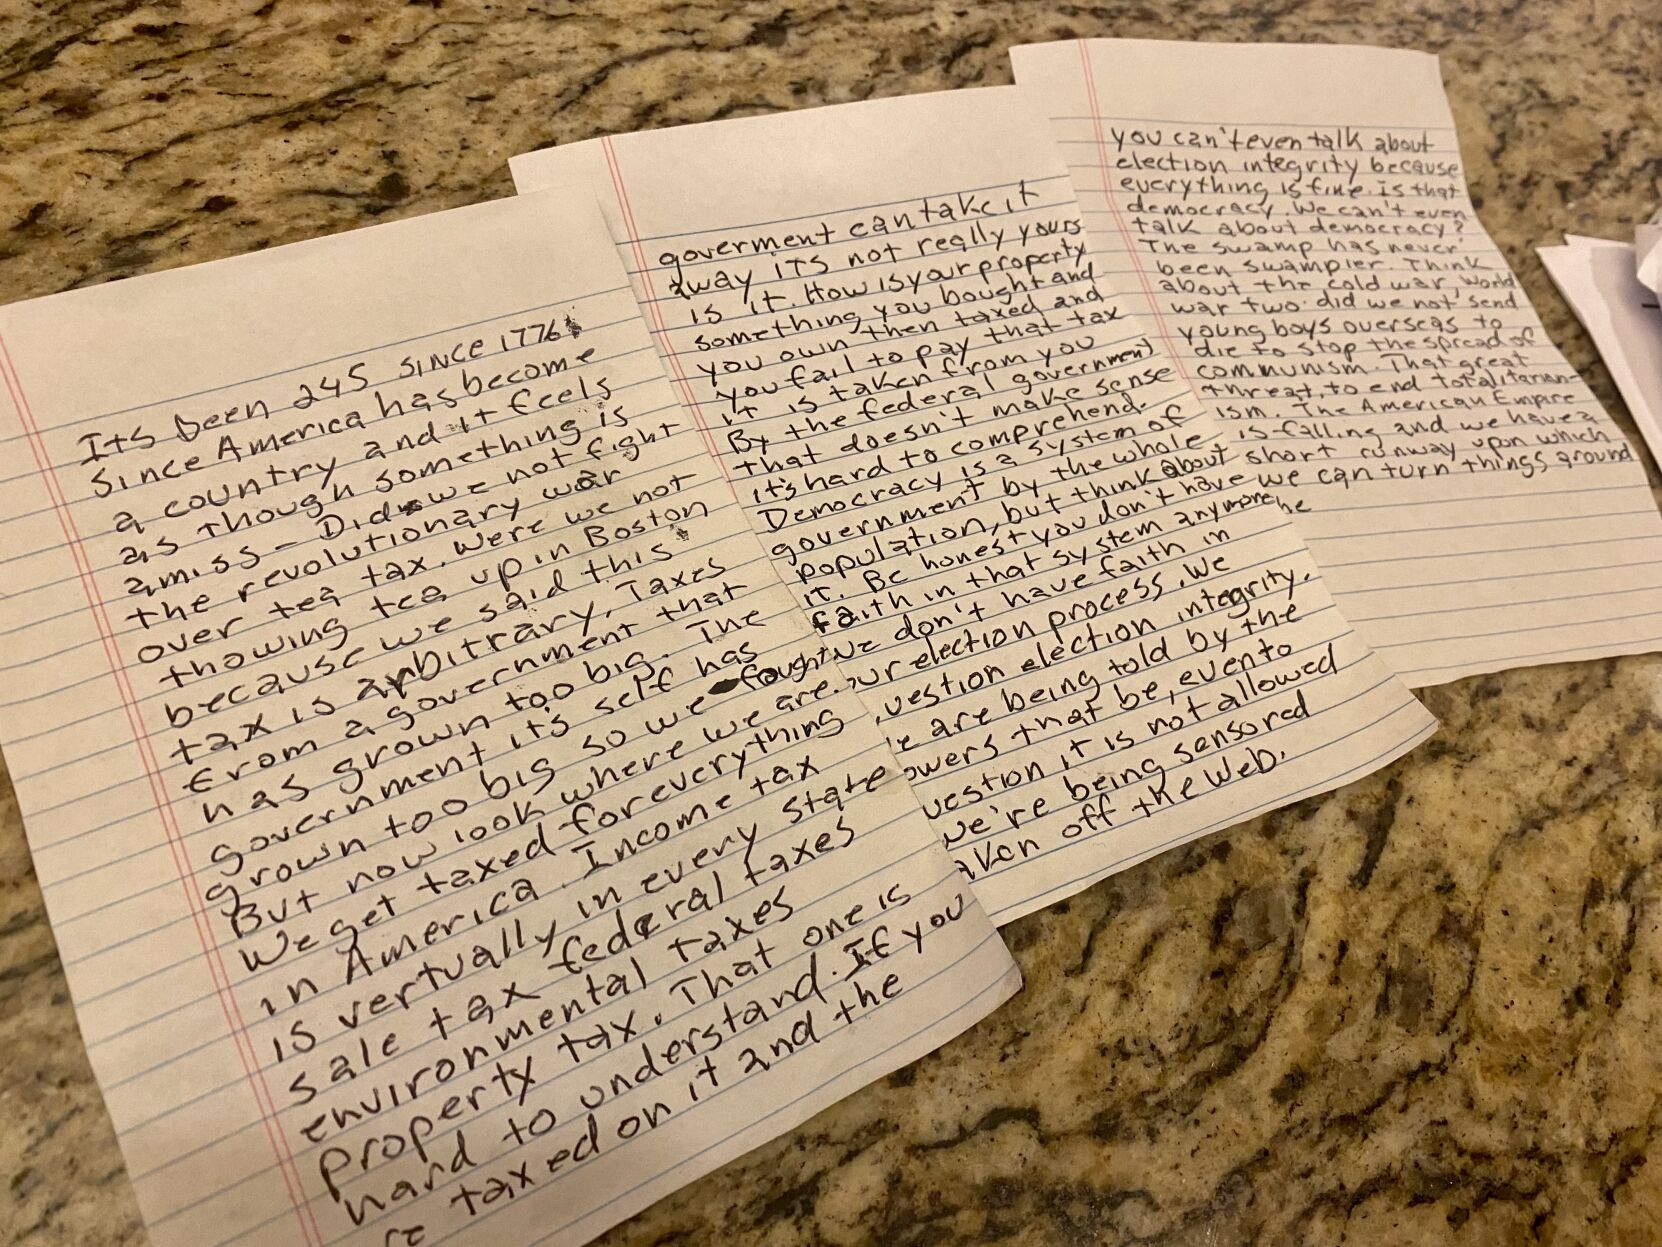 Its been 245 since 1776
since America has become
a country and it feels
as though something is
amiss - Did we not fight
the revolutionary war
over tea tax. Were we not
thowing tea up in Boston
because we said this
tax is arbitrary. Taxes
from a government that
has grown too big. The
government its self has
grown too big so we fought
But now look where we are.
We get taxed for everything
in America. Income tax
is vertually in every state
sale tax federal taxes
environmental taxes
property tax. That one is
hard to understand. If you
re taxed on it and the
goverment can take it
away its not really yours
is it. How is your property
something you bought and
you own then taxed and
you fail to pay that tax
it is taken from you
By the federal government)
that doesn't make sense
it's hard to comprehend.
Democracy is a system of
government by the whole
population, but think about
it. Be honest you don't have
faith in that system anymore
we don't have faith in
our election process. We
question election integrity.
are being told by the
owers that be, even to
uestion it is not allowed
we're being sensored
aken off the web.
you can't even talk about
election integrity because
everything is fine. Is that
democracy. We can't even
talk about democracy?
The swamp has never
been swampier. Think
about the cold war, World
war two. did we not send
young boys overseas to
die to stop the spread of
communism. That great
threat, to end totalitarian-
ism. The American Empire
is falling and we have a
short runway upon which
we can turn things around